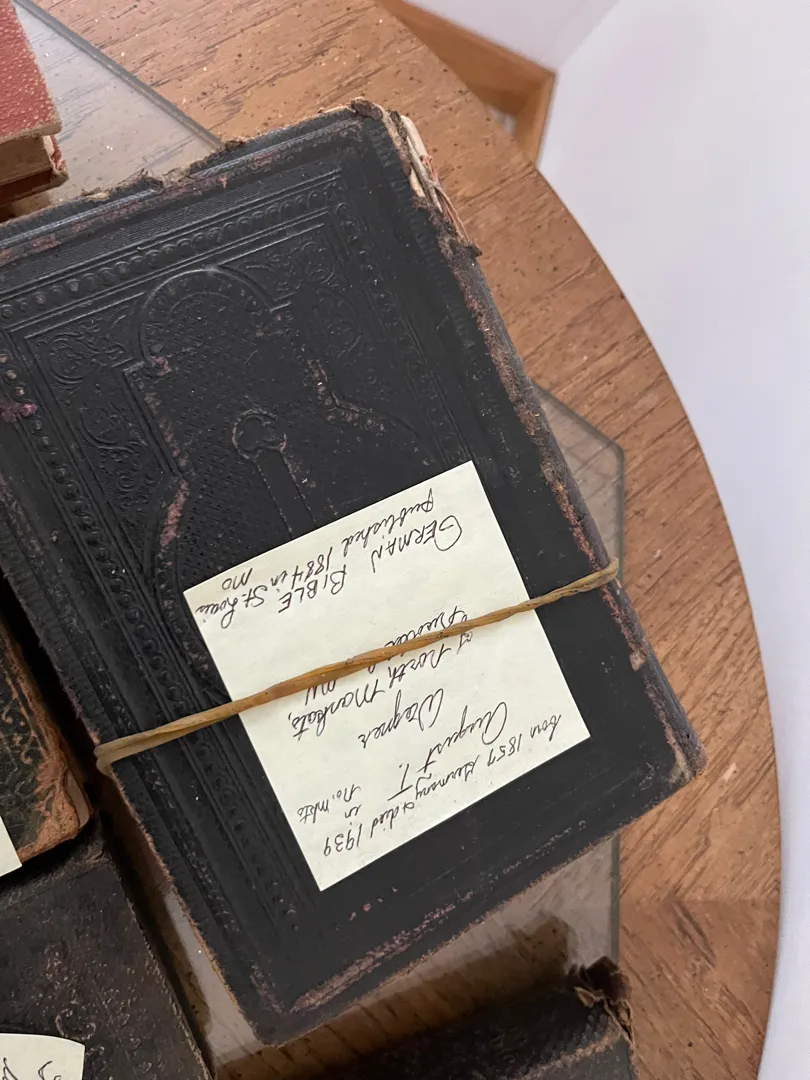 born 1857 Germany & died 1939
in No. Mkto
August T.
Wagner
of North Mankato,
MN
GERMAN BIBLE
published 1884 in St. Louis
MO